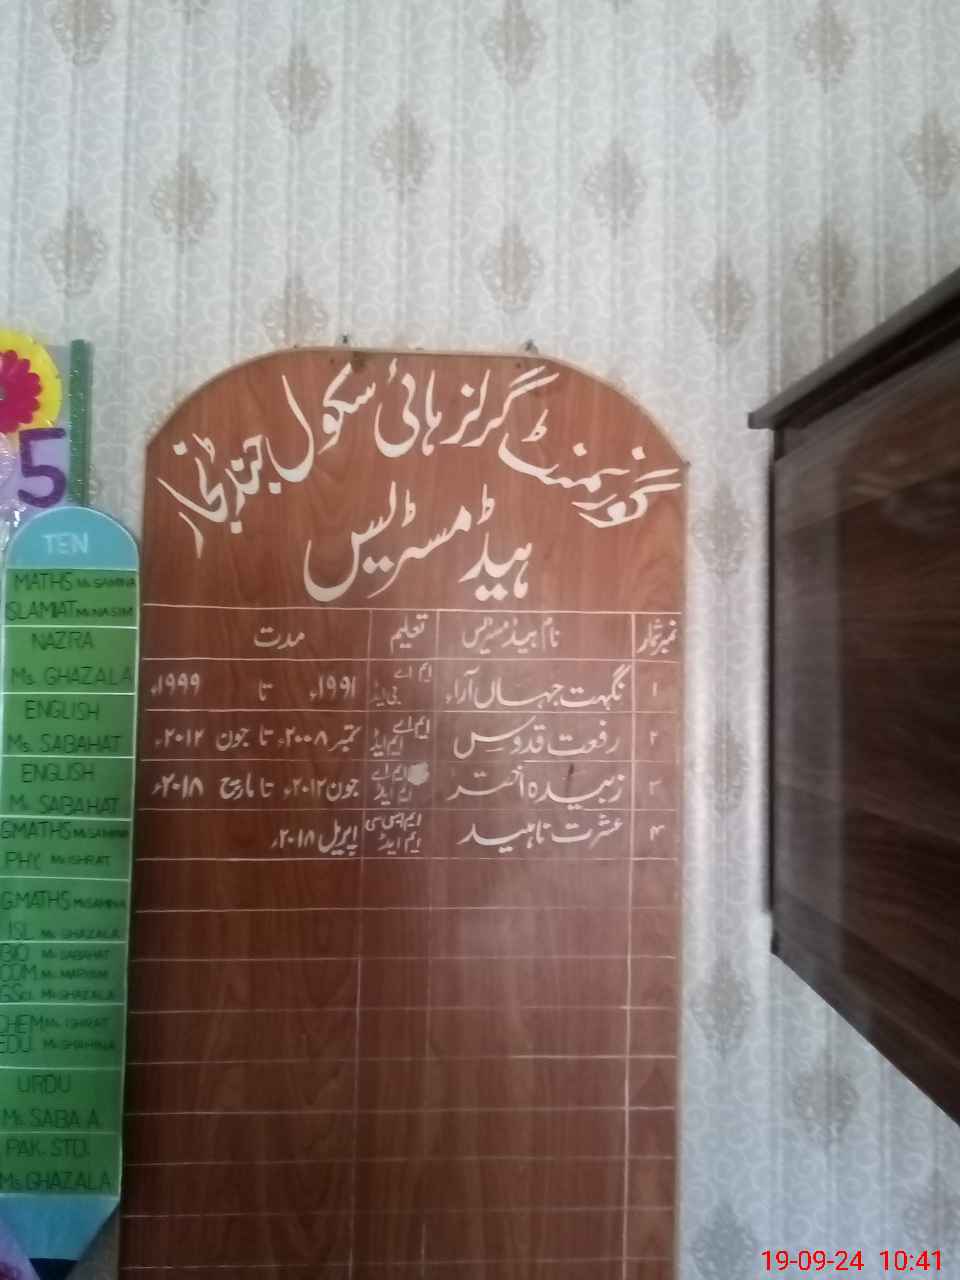 گورنمنٹ گرلز ہائی سکول جنڈ نجار
ہیڈ مسٹریس
نمبر شمار نام ہیڈ مسٹریس تعلیم مدت
۱ نگہت جہاں آراء ایم اے بی ایڈ ۱۹۹۱ء تا ۱۹۹۹ء
۲ رفعت قدوس ایم اے ایم ایڈ ستمبر ۲۰۰۸ء تا جون ۲۰۱۲ء
۳ زبیدہ اختر ایم اے ایم ایڈ جون ۲۰۱۲ء تا مارچ ۲۰۱۸ء
۴ عشرت ناہید ایم ایس سی ایم ایڈ اپریل ۲۰۱۸ء
5
TEN
MATHS Ms. SAMINA
ISLAMIAT Ms. NASIM
NAZRA
Ms. GHAZALA
ENGLISH
Ms. SABAHAT
ENGLISH
Ms. SABAHAT
GMATHS Ms. SAMINA
PHY. Ms. ISHRAT
G.MATHS Ms. SAMINA
ISL. Ms. GHAZALA
BIO Ms. SABAHAT
COM. Ms. MARYAM
G.SCI. Ms. GHAZALA
CHEM Ms. ISHRAT
EDU. Ms. SHAHINA
URDU
Ms. SABA A.
PAK. STD.
Ms. GHAZALA
19-09-24 10:41